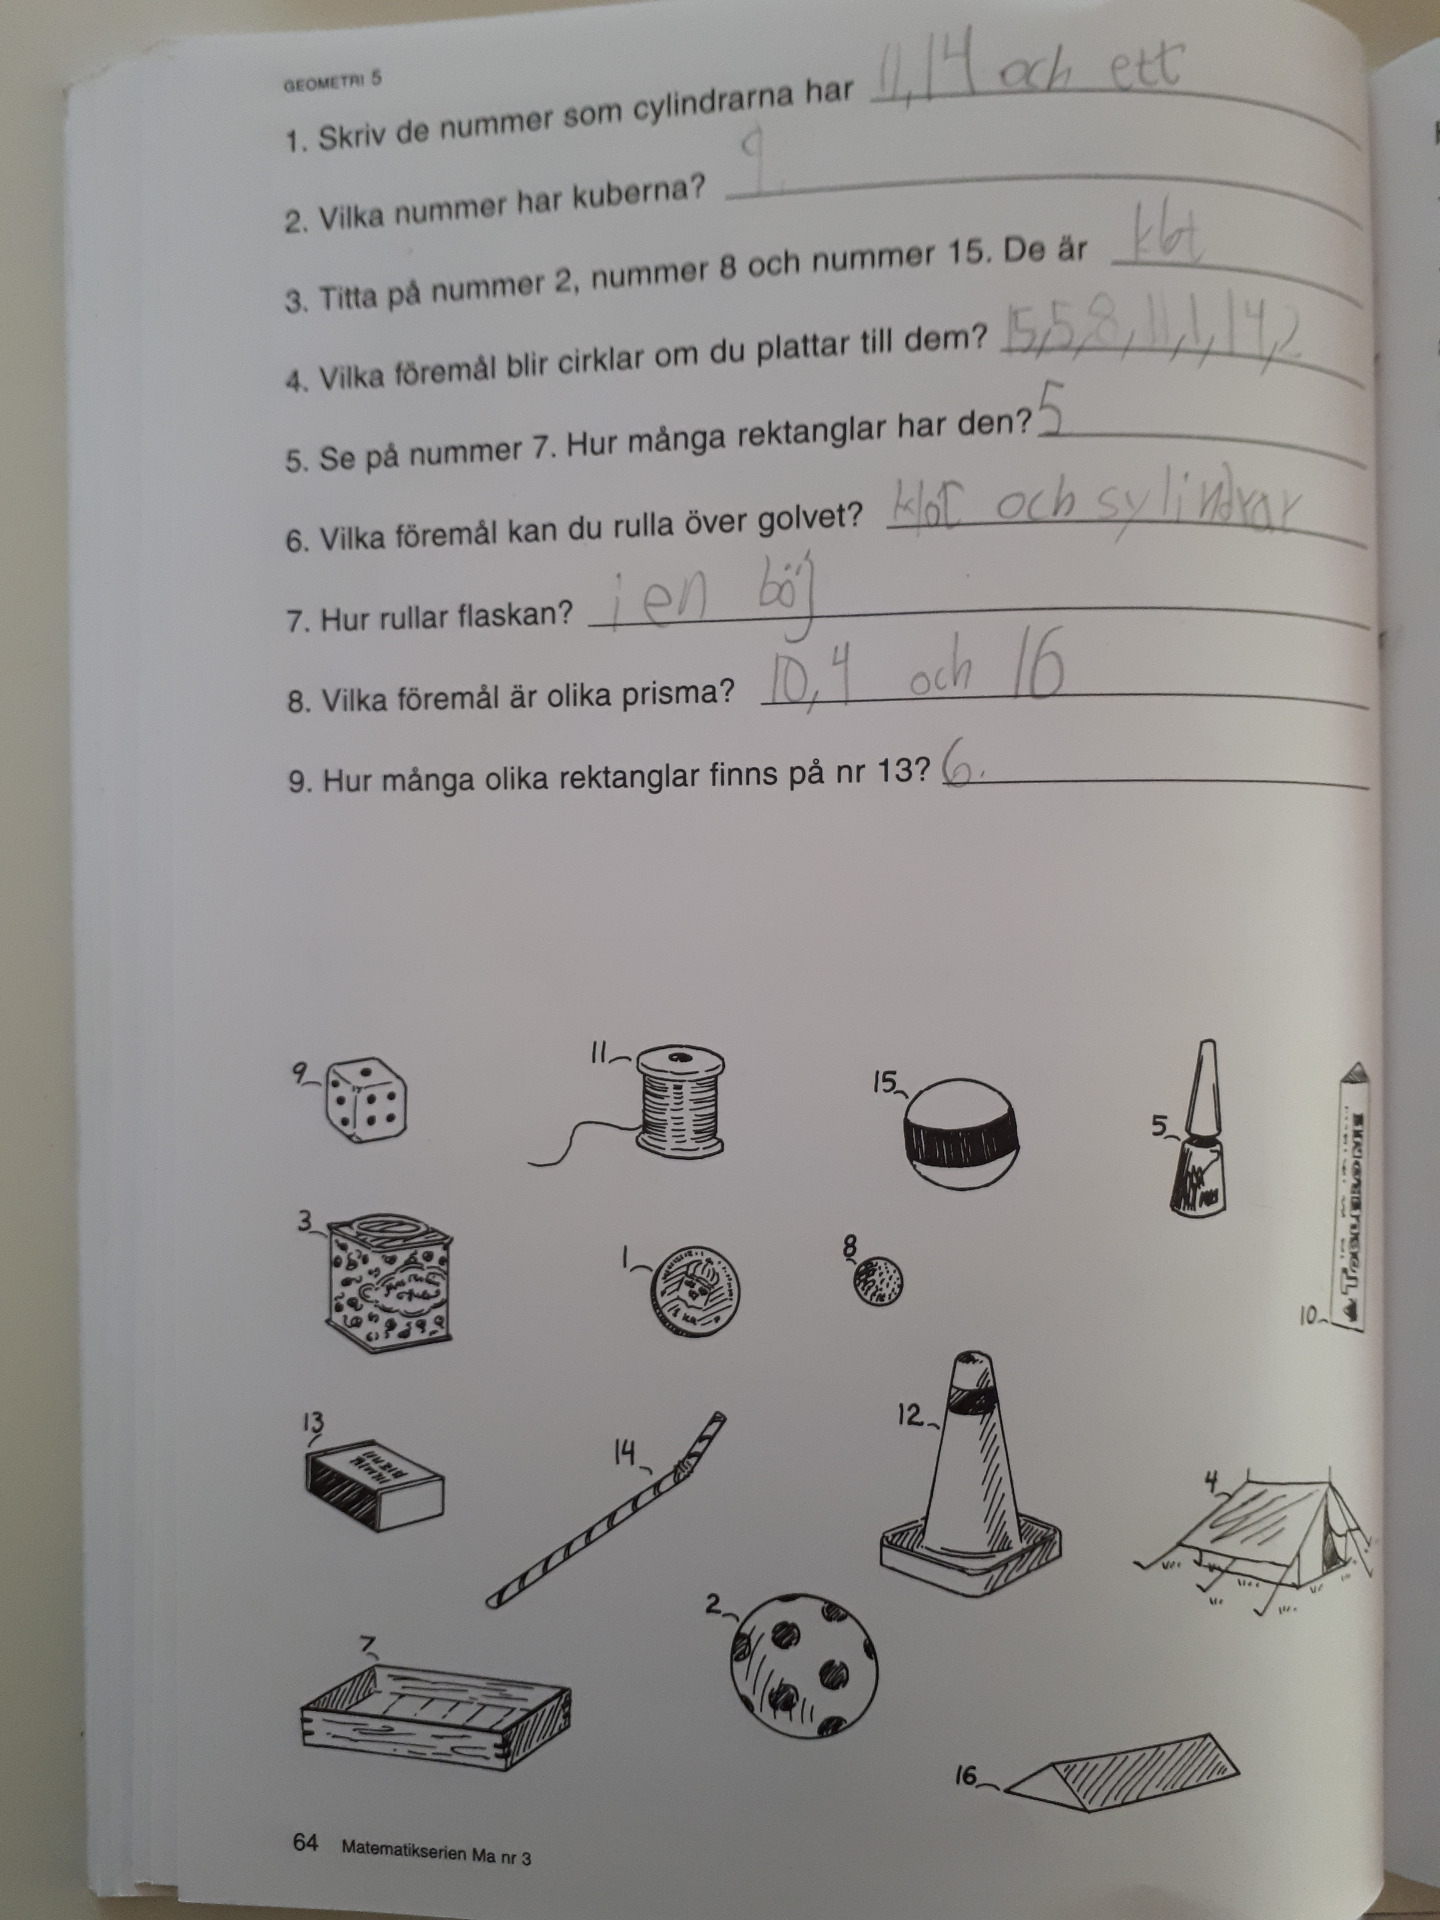 GEOMETRI 5
1. Skriv de nummer som cylindrarna har 11,14 och ett
2. Vilka nummer har kuberna? 9
3. Titta på nummer 2, nummer 8 och nummer 15. De är klot
4. Vilka föremål blir cirklar om du plattar till dem? 15,5,8,11,1,14,2
5. Se på nummer 7. Hur många rektanglar har den? 5
6. Vilka föremål kan du rulla över golvet? klot och sylindrar
7. Hur rullar flaskan? i en böj
8. Vilka föremål är olika prisma? 10,4 och 16
9. Hur många olika rektanglar finns på nr 13? 6.
9
11
15
5
3
1
15 KR
8
10
13
14
12
4
7
2
16
64 Matematikserien Ma nr 3